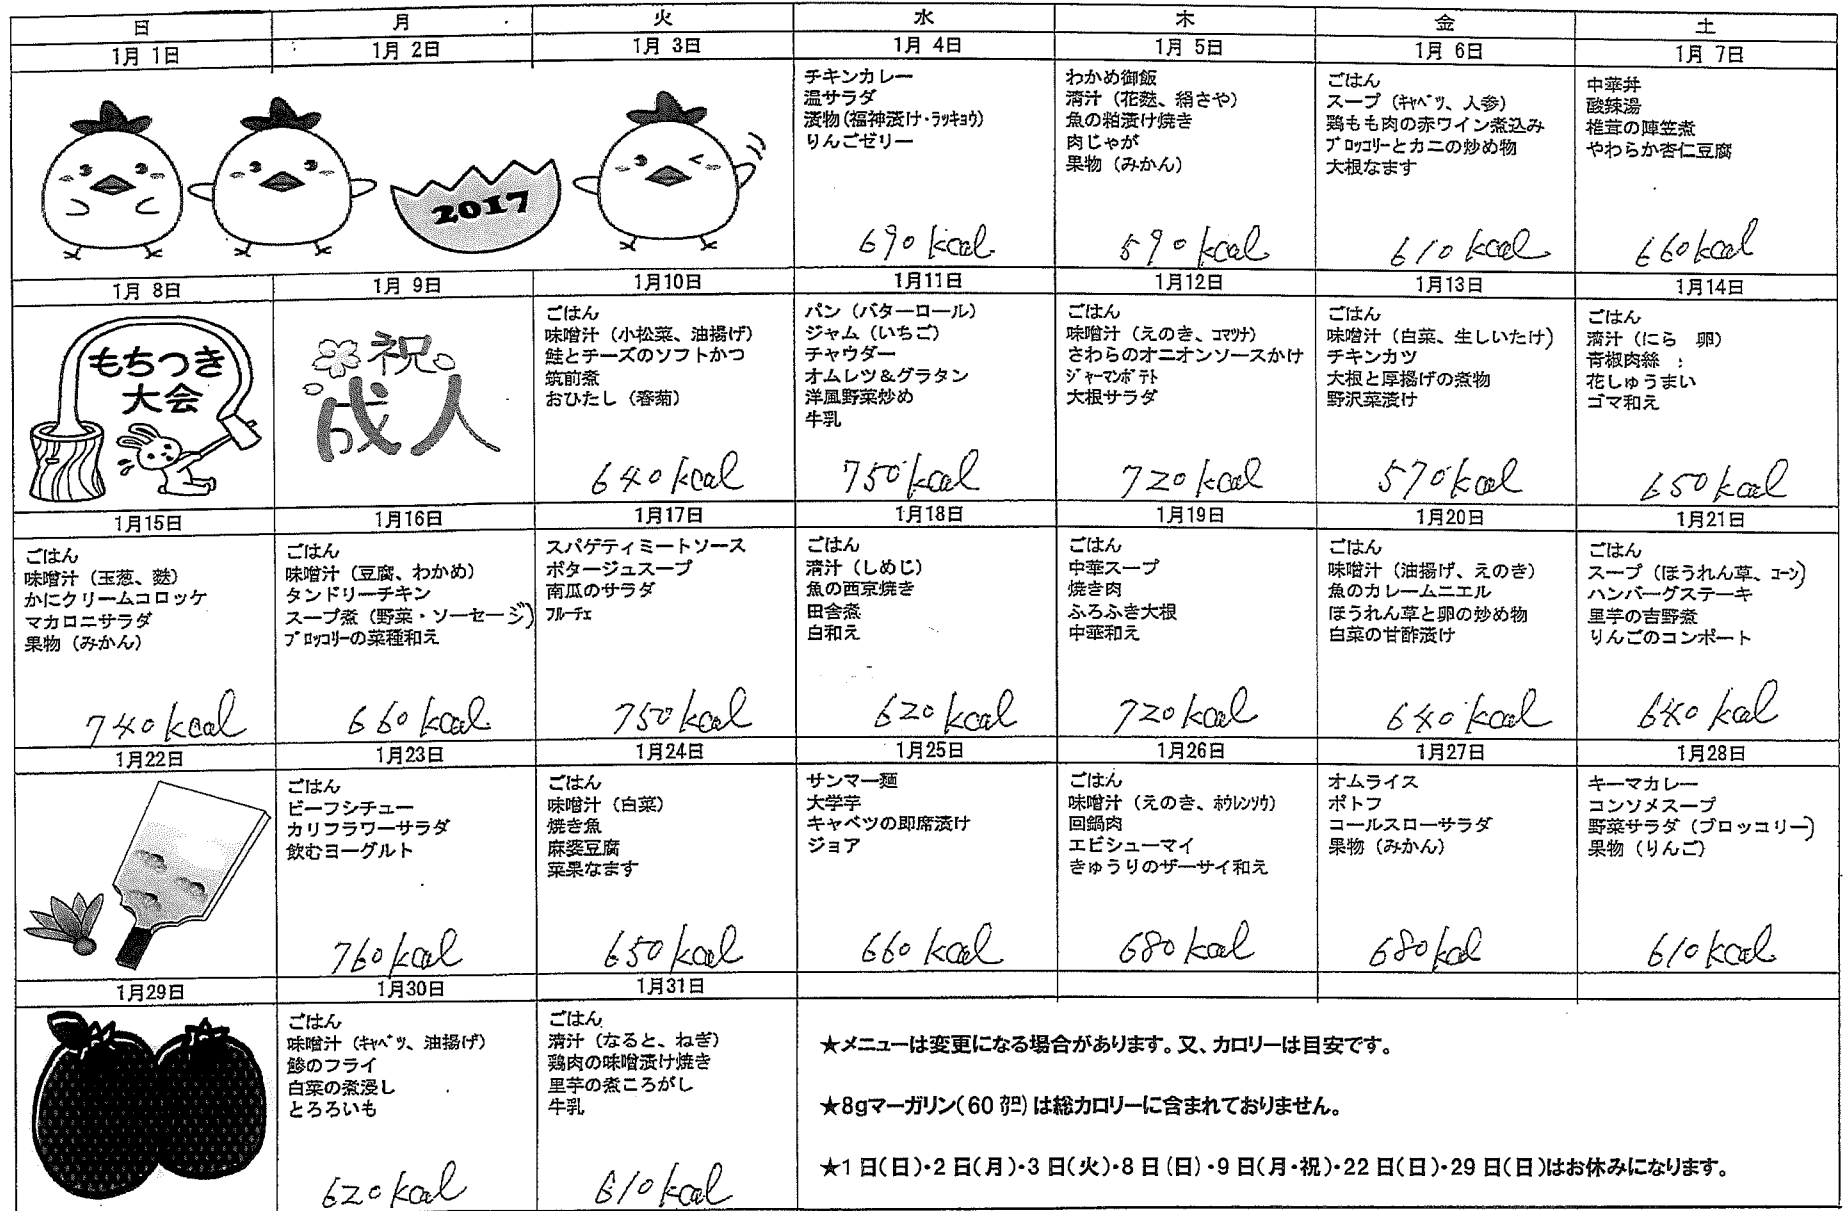 日 月 火 水 木 金 土
1月 1日 1月 2日 1月 3日 1月 4日 1月 5日 1月 6日 1月 7日
2017
チキンカレー
温サラダ
漬物(福神漬け・ラッキョウ)
りんごゼリー
690kcal
わかめ御飯
清汁(花麩、絹さや)
魚の粕漬け焼き
肉じゃが
果物(みかん)
590kcal
ごはん
スープ(キャベツ、人参)
鶏もも肉の赤ワイン煮込み
ブロッコリーとカニの炒め物
大根なます
610kcal
中華丼
酸辣湯
椎茸の陣笠煮
やわらか杏仁豆腐
660kcal
1月 8日 1月 9日 1月10日 1月11日 1月12日 1月13日 1月14日
もちつき
大会
祝
成人
ごはん
味噌汁(小松菜、油揚げ)
鮭とチーズのソフトかつ
筑前煮
おひたし(春菊)
640kcal
パン(バターロール)
ジャム(いちご)
チャウダー
オムレツ&グラタン
洋風野菜炒め
牛乳
750kcal
ごはん
味噌汁(えのき、コマツナ)
さわらのオニオンソースかけ
ジャーマンポテト
大根サラダ
720kcal
ごはん
味噌汁(白菜、生しいたけ)
チキンカツ
大根と厚揚げの煮物
野沢菜漬け
570kcal
ごはん
清汁(にら 卵)
青椒肉絲
花しゅうまい
ゴマ和え
650kcal
1月15日 1月16日 1月17日 1月18日 1月19日 1月20日 1月21日
ごはん
味噌汁(玉葱、麩)
かにクリームコロッケ
マカロニサラダ
果物(みかん)
740kcal
ごはん
味噌汁(豆腐、わかめ)
タンドリーチキン
スープ煮(野菜・ソーセージ)
ブロッコリーの菜種和え
660kcal
スパゲティミートソース
ポタージュスープ
南瓜のサラダ
フルーチェ
750kcal
ごはん
清汁(しめじ)
魚の西京焼き
田舎煮
白和え
620kcal
ごはん
中華スープ
焼き肉
ふろふき大根
中華和え
720kcal
ごはん
味噌汁(油揚げ、えのき)
魚のカレームニエル
ほうれん草と卵の炒め物
白菜の甘酢漬け
640kcal
ごはん
スープ(ほうれん草、コーン)
ハンバーグステーキ
里芋の吉野煮
りんごのコンポート
640kcal
1月22日 1月23日 1月24日 1月25日 1月26日 1月27日 1月28日
ごはん
ビーフシチュー
カリフラワーサラダ
飲むヨーグルト
760kcal
ごはん
味噌汁(白菜)
焼き魚
麻婆豆腐
菜果なます
650kcal
サンマー麺
大学芋
キャベツの即席漬け
ジョア
660kcal
ごはん
味噌汁(えのき、ホウレンソウ)
回鍋肉
エビシューマイ
きゅうりのザーサイ和え
680kcal
オムライス
ポトフ
コールスローサラダ
果物(みかん)
680kcal
キーマカレー
コンソメスープ
野菜サラダ(ブロッコリー)
果物(りんご)
610kcal
1月29日 1月30日 1月31日
ごはん
味噌汁(キャベツ、油揚げ)
鯵のフライ
白菜の煮浸し
とろろいも
620kcal
ごはん
清汁(なると、ねぎ)
鶏肉の味噌漬け焼き
里芋の煮ころがし
牛乳
610kcal
★メニューは変更になる場合があります。又、カロリーは目安です。
★8gマーガリン(60㌍)は総カロリーに含まれておりません。
★1日(日)・2日(月)・3日(火)・8日(日)・9日(月・祝)・22日(日)・29日(日)はお休みになります。